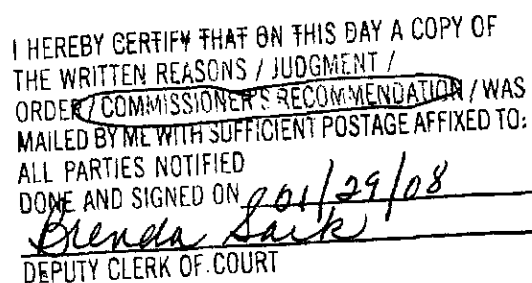 I HEREBY CERTIFY THAT ON THIS DAY A COPY OF
THE WRITTEN REASONS / JUDGMENT /
ORDER / COMMISSIONER'S RECOMMENDATION / WAS
MAILED BY ME WITH SUFFICIENT POSTAGE AFFIXED TO:
ALL PARTIES NOTIFIED
DONE AND SIGNED ON 01/29/08
Brenda
DEPUTY CLERK OF COURT